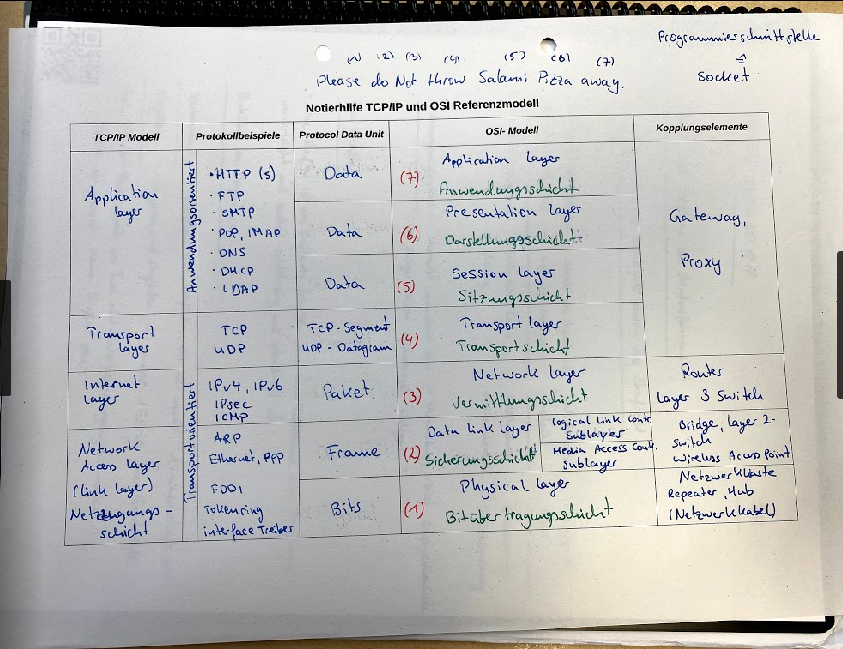 Programmierschnittstelle
(1) (2) (3) (4) (5) (6) (7)
Please do Not throw Salami Pizza away.
Socket
Notierhilfe TCP/IP und OSI Referenzmodell
TCP/IP Modell
Protokollbeispiele
Protocol Data Unit
OSI- Modell
Kopplungselemente
Application
layer
Anwendungsorientiert
• HTTP (S)
• FTP
• SMTP
• POP, IMAP
• DNS
• DHCP
• LDAP
Data
(7)
Application layer
Anwendungsschicht
Data
(6)
Presentation layer
Darstellungsschicht
Data
(5)
Session layer
Sitzungsschicht
Gateway,
Proxy
Transport
layer
TCP
UDP
TCP-Segment
UDP-Datagram
(4)
Transport layer
Transportschicht
Internet
Layer
Transportorientiert
IPv4, IPv6
IPsec
ICMP
Paket
(3)
Network layer
Vermittlungsschicht
Router
Layer 3 Switch
Network
Access layer
(link layer)
Netzugangs-
schicht
ARP
Ethernet, PPP
FDDI
Tokenring
interface Treiber
Frame
(2)
Data link layer
Sicherungsschicht
logical link Contr.
Sublayer
Media Access Cont.
sublayer
Bridge, layer 2-
switch
Wireless Access Point
Bits
(1)
Physical layer
Bitübertragungsschicht
Repeater, Hub
(Netzwerkkabel)